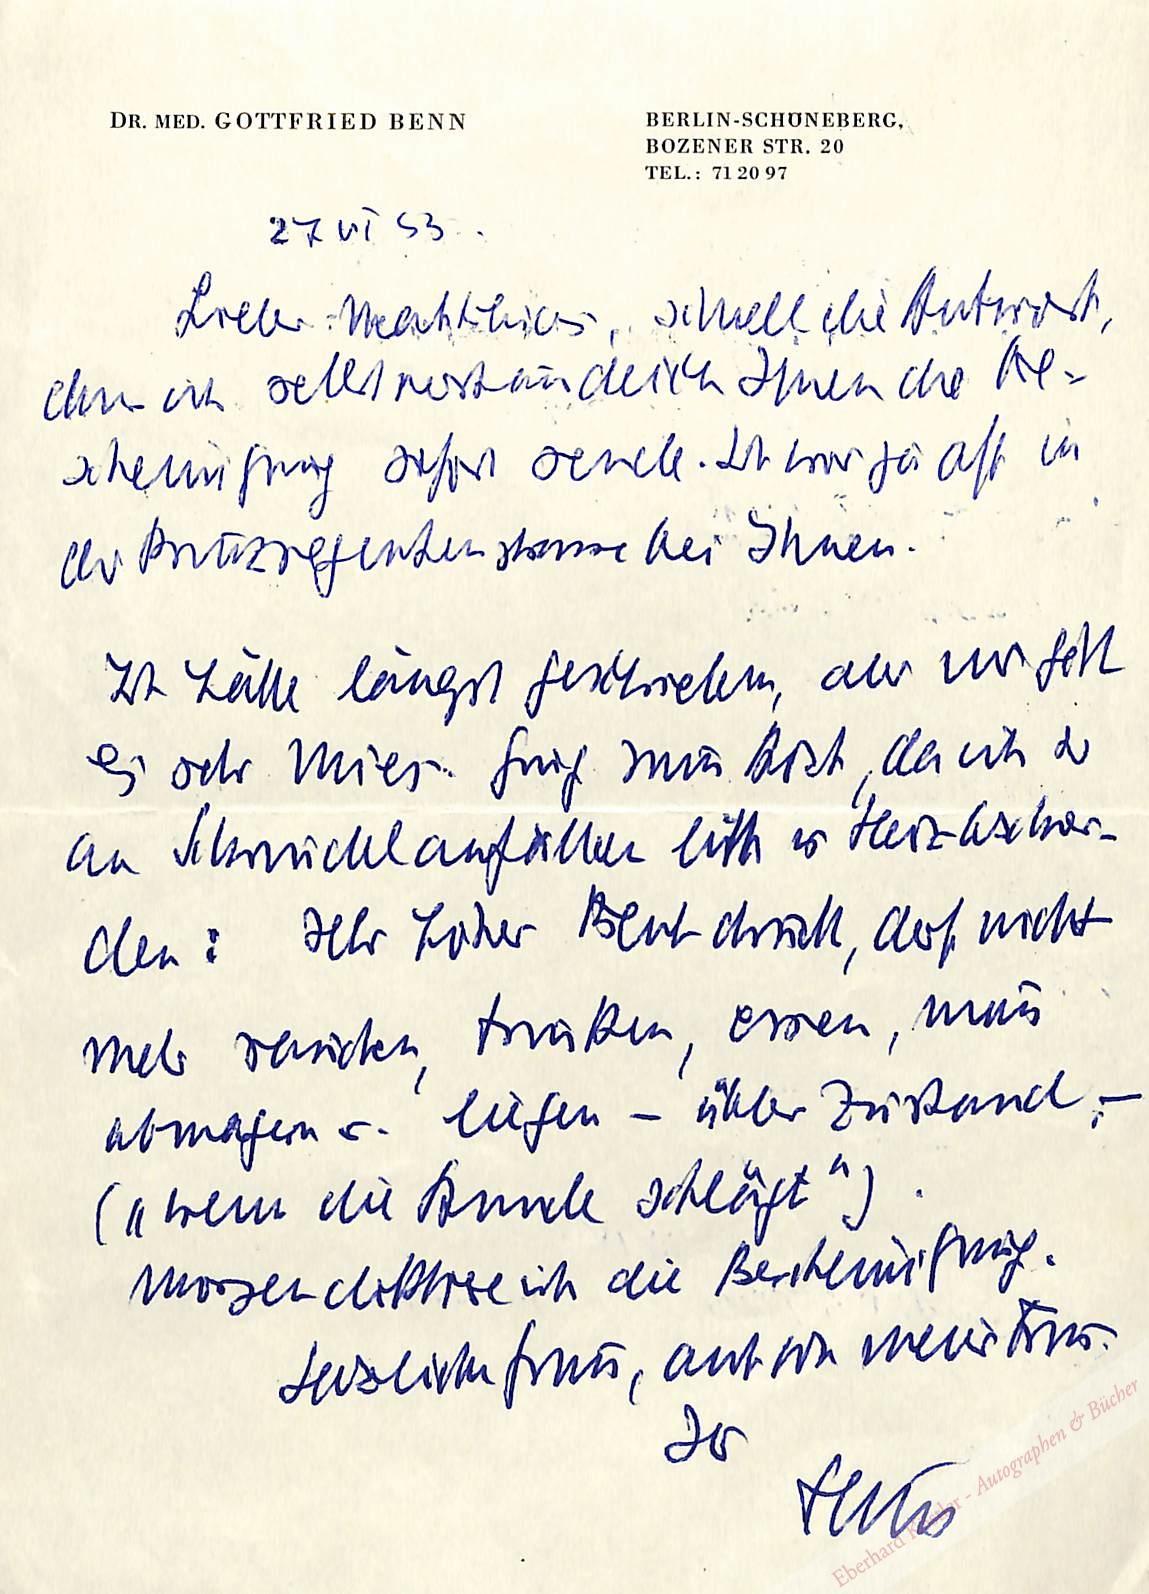 DR. MED. GOTTFRIED BENN
BERLIN-SCHÖNEBERG,
BOZENER STR. 20
TEL.: 71 20 97
27 VI 53.
Lieber Matthias, schnell die Antwort,
dass ich selbstverständlich Ihnen die Be-
scheinigung sofort sende. Ich war ja oft in
der Prinzregentenstrasse bei Ihnen.
Ich hätte längst geschrieben, aber mir geht
es sehr mies. Ging zum Arzt, da ich so
an Schwindelanfällen litt u Herzbeschwer-
den: sehr hoher Blutdruck, darf nicht
mehr rauchen, trinken, essen, muss
abmagern u. liegen – übler Zustand, –
(„wem die Stunde schlägt“).
Morgen diktiere ich die Bescheinigung.
Herzlichen Gruss, auch von meiner Frau.
Ihr
Eberhard Köstler - Autographen & Bücher